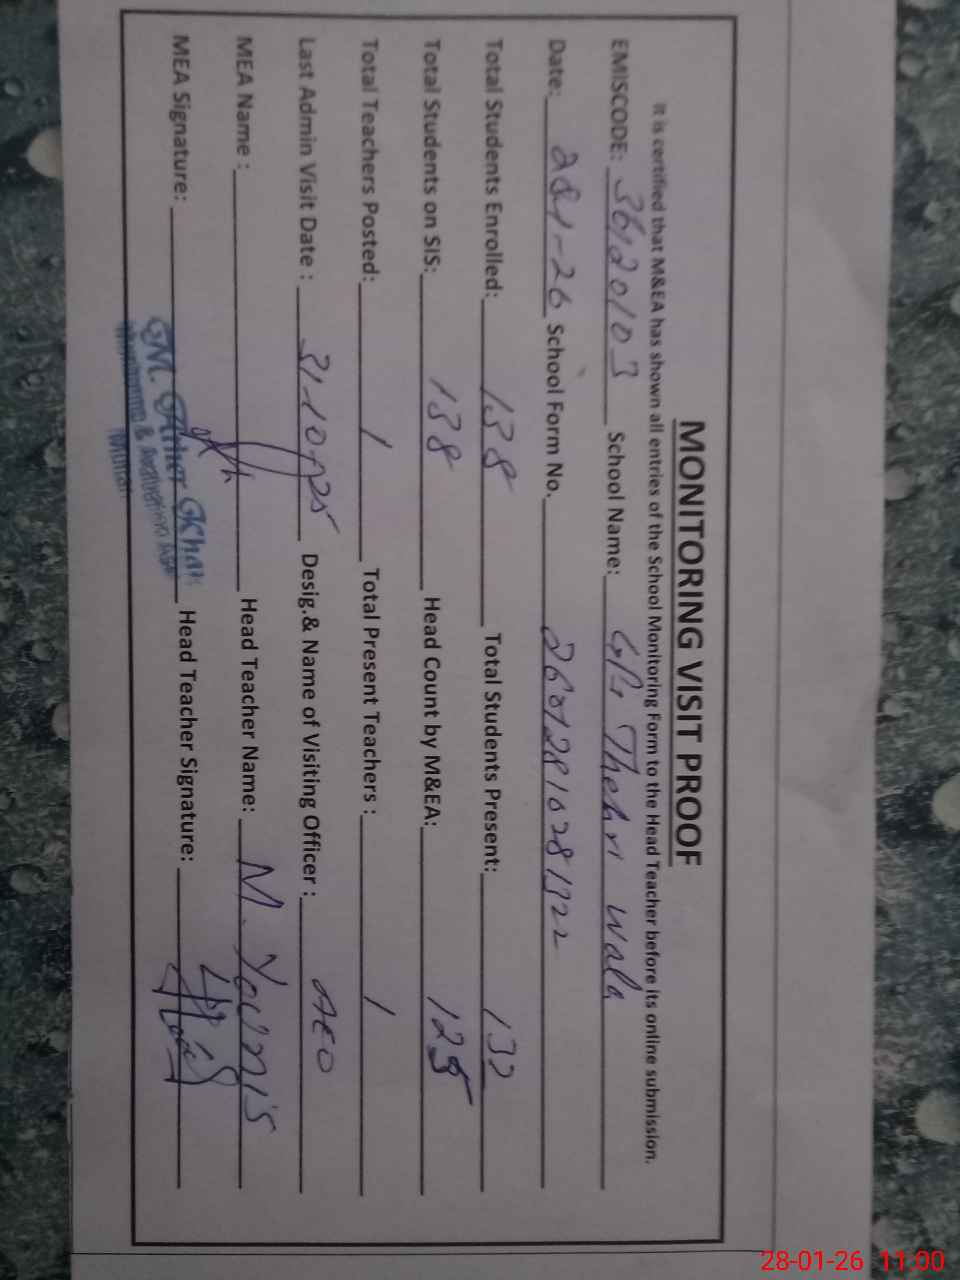 MONITORING VISIT PROOF
It is certified that M&EA has shown all entries of the School Monitoring Form to the Head Teacher before its online submission.
EMISCODE: 36120103 School Name: GPS Thehri wala
Date: 28-1-26 School Form No. 26012810281722
Total Students Enrolled: 138 Total Students Present: 132
Total Students on SIS: 138 Head Count by M&EA: 125
Total Teachers Posted: 1 Total Present Teachers : 1
Last Admin Visit Date : 31-10-25 Desig.& Name of Visiting Officer : AEO
MEA Name : Head Teacher Name: M. Younis
MEA Signature: Head Teacher Signature:
M. Khan
Monitoring & Evaluation
28-01-26 11:00